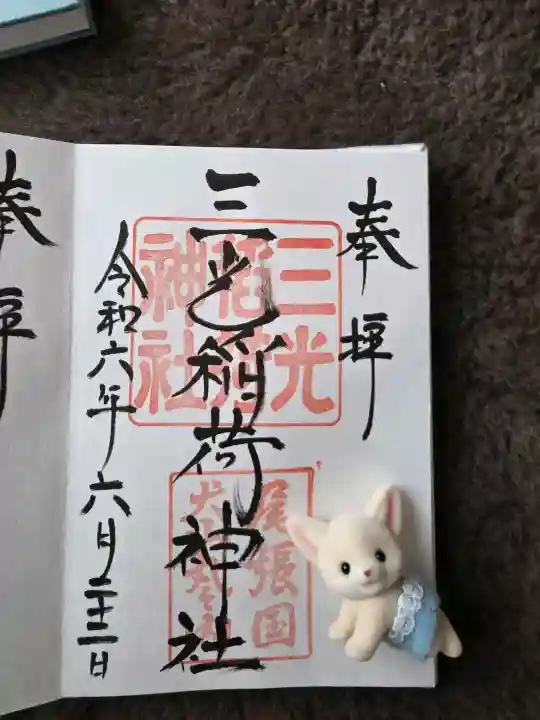 奉拝
三光稲荷神社
三光
稲荷
神社
尾張国
犬山
令和六年六月二十二日
奉拝